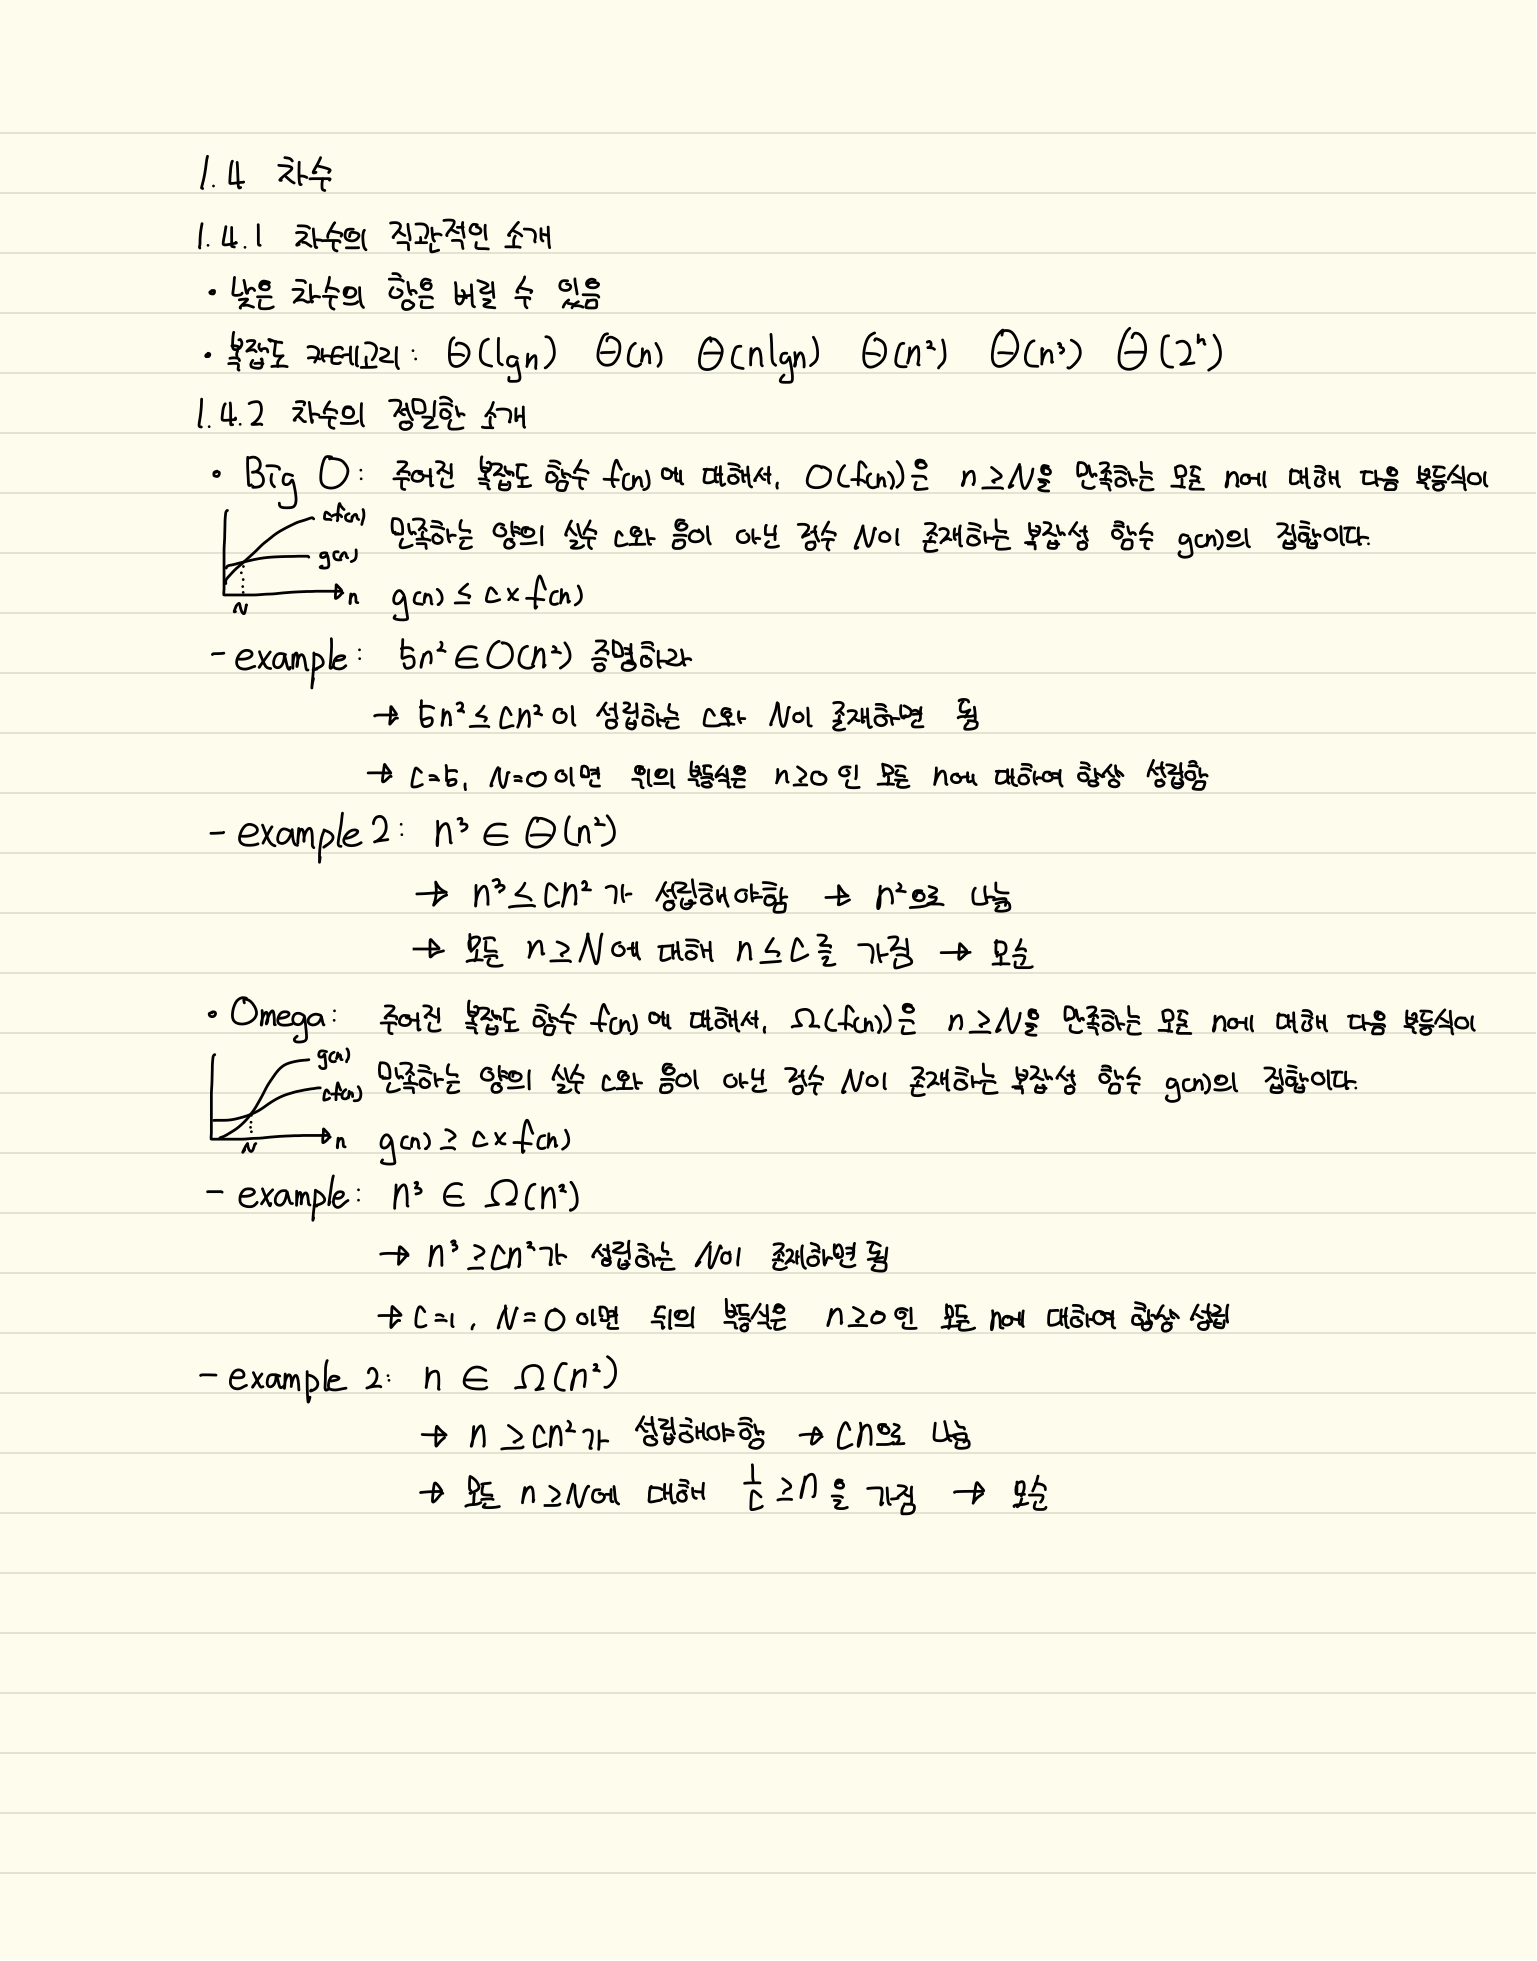 1.4 차수
1.4.1 차수의 직관적인 소개
• 낮은 차수의 항은 버릴 수 있음
• 복잡도 카테고리: Θ(lgn) Θ(n) Θ(nlgn) Θ(n²) Θ(n³) Θ(2ⁿ)
1.4.2 차수의 정밀한 소개
• Big O: 주어진 복잡도 함수 f(n)에 대해서, O(f(n))은 n≥N을 만족하는 모든 n에 대해 다음 부등식이
cf(n)
만족하는 양의 실수 c와 음이 아닌 정수 N이 존재하는 복잡성 함수 g(n)의 집합이다.
g(n)
n
N
g(n) ≤ c×f(n)
- example: 5n²∈O(n²) 증명하라
→ 5n²≤cn²이 성립하는 c와 N이 존재하면 됨
→ c=5, N=0이면 위의 부등식은 n≥0인 모든 n에 대하여 항상 성립함
- example 2: n³ ∈ Θ(n²)
→ n³≤cn²가 성립해야함 → n²으로 나눔
→ 모든 n≥N에 대해 n≤c를 가짐 → 모순
• Omega: 주어진 복잡도 함수 f(n)에 대해서, Ω(f(n))은 n≥N을 만족하는 모든 n에 대해 다음 부등식이
g(n)
만족하는 양의 실수 c와 음이 아닌 정수 N이 존재하는 복잡성 함수 g(n)의 집합이다.
cf(n)
n
N
g(n) ≥ c×f(n)
- example: n³ ∈ Ω(n²)
→ n³ ≥cn²가 성립하는 N이 존재하면 됨
→ c=1, N=0이면 뒤의 부등식은 n≥0인 모든 n에 대하여 항상 성립
- example 2: n ∈ Ω(n²)
→ n ≥cn²가 성립해야함 → cn으로 나눔
→ 모든 n≥N에 대해 1/c ≥n을 가짐 → 모순